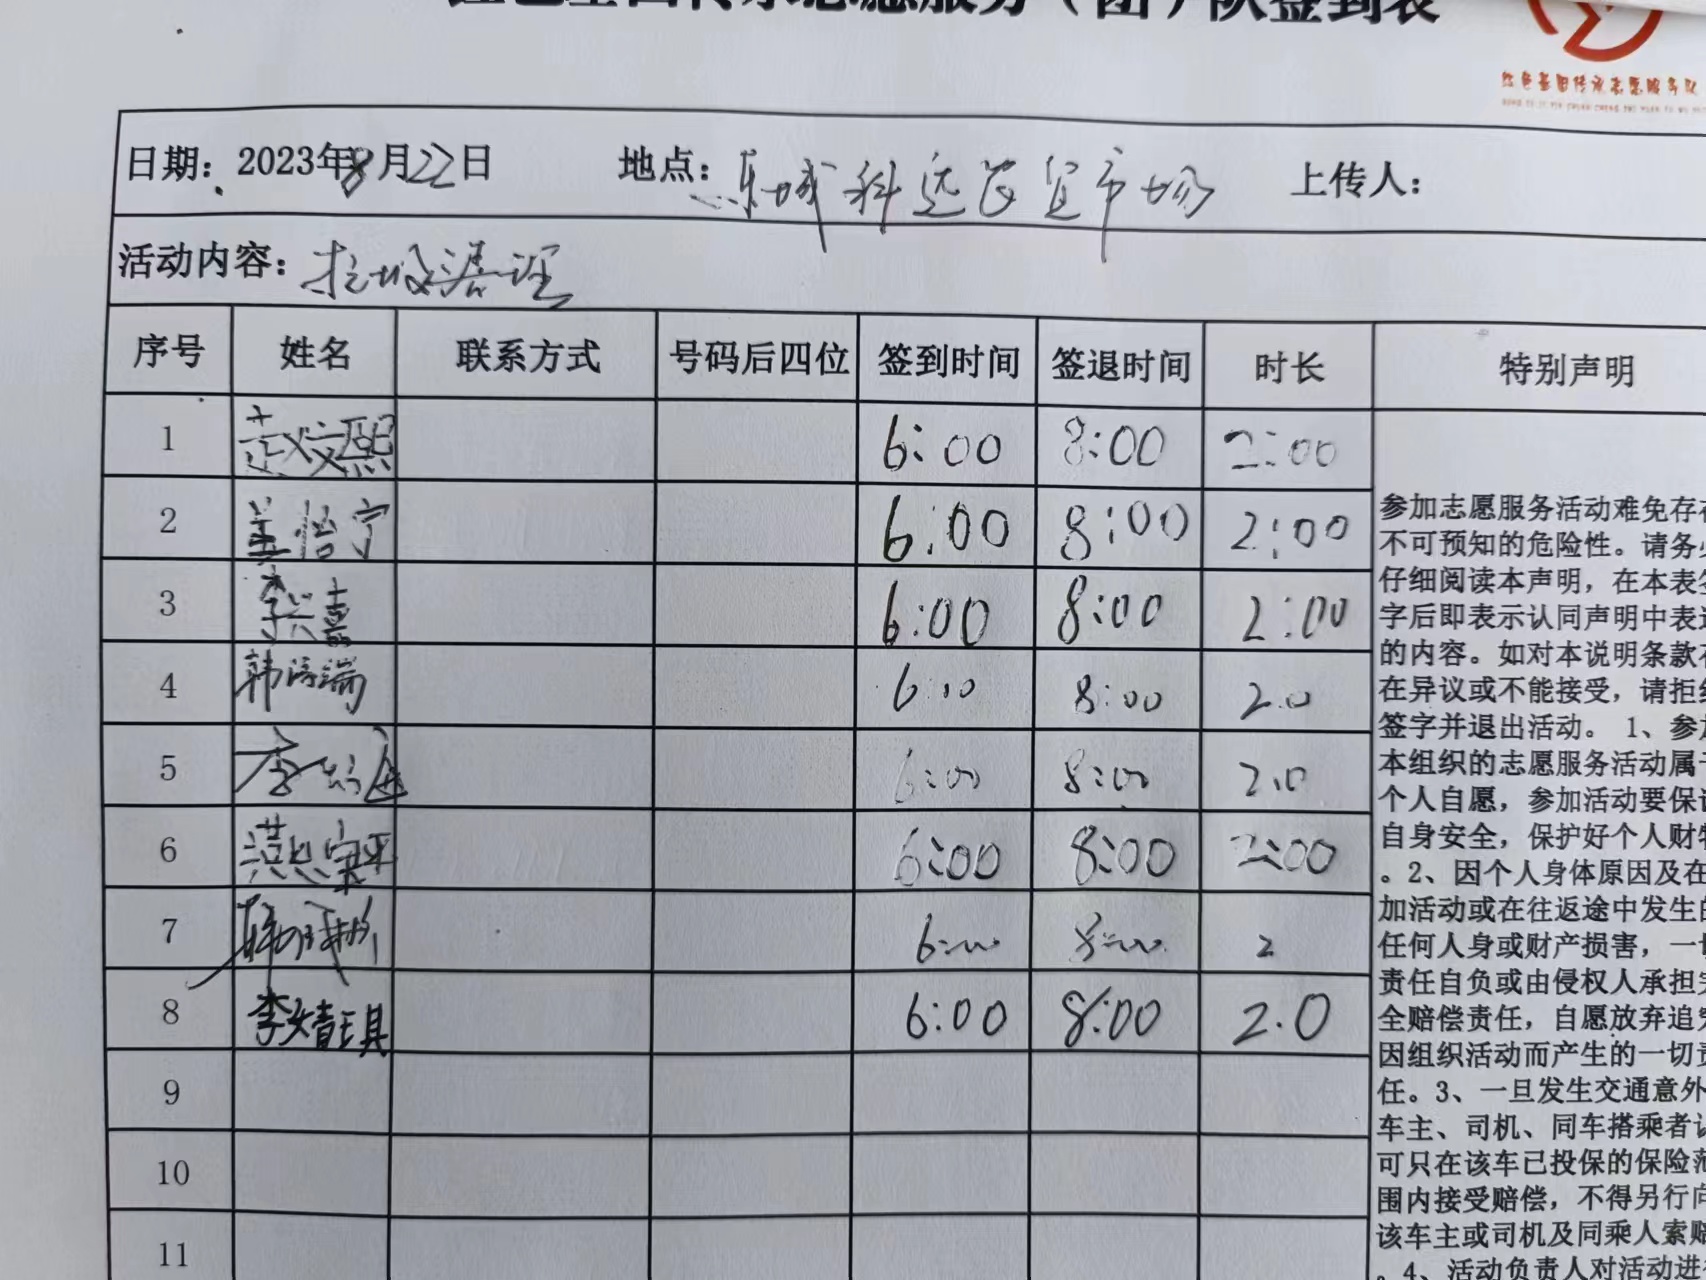 红色基因传承志愿服务（团）队签到表
红色基因传承志愿服务队
日期：2023年8月22日 地点：东城科远农贸市场 上传人：
活动内容：垃圾清理
序号 姓名 联系方式 号码后四位 签到时间 签退时间 时长 特别声明
1 6:00 8:00 2:00
2 姜怡宁 6:00 8:00 2:00
3 李兴嘉 6:00 8:00 2:00
4 韩 端 6:10 8:00 2.0
5 李 6:00 8:00 2.0
6 6:00 8:00 2:00
7 6:00 8:00 2
8 李婧琪 6:00 8:00 2.0
9
10
11
参加志愿服务活动难免存在
不可预知的危险性。请务必
仔细阅读本声明，在本表签
字后即表示认同声明中表述
的内容。如对本说明条款存
在异议或不能接受，请拒绝
签字并退出活动。1、参加
本组织的志愿服务活动属于
个人自愿，参加活动要保证
自身安全，保护好个人财物
。2、因个人身体原因及在
加活动或在往返途中发生的
任何人身或财产损害，一切
责任自负或由侵权人承担完
全赔偿责任，自愿放弃追究
因组织活动而产生的一切责
任。3、一旦发生交通意外
车主、司机、同车搭乘者认
可只在该车已投保的保险范
围内接受赔偿，不得另行向
该车主或司机及同乘人索赔
。4、活动负责人对活动进